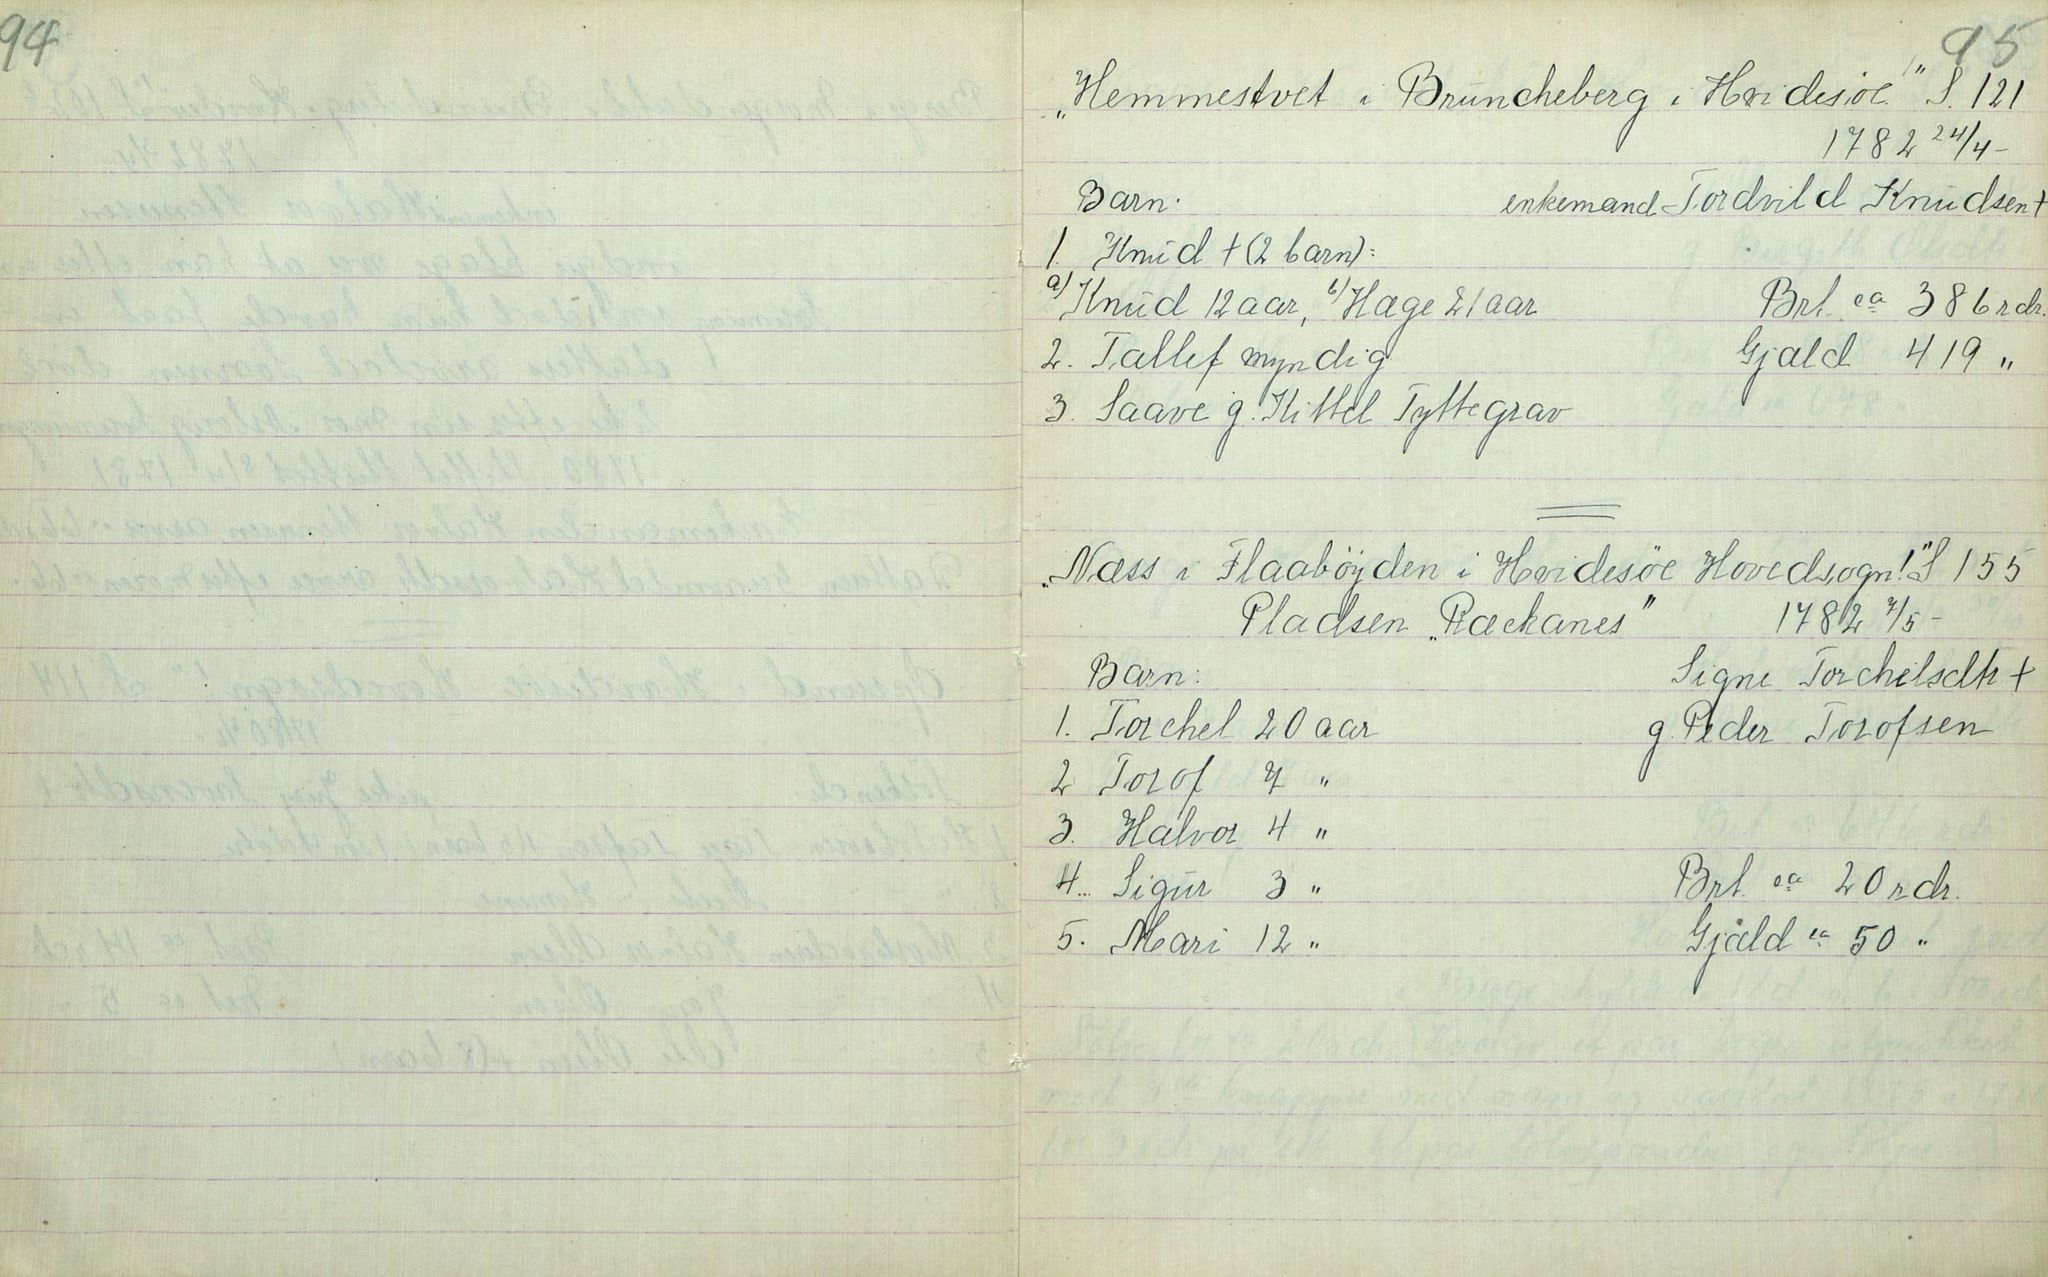 94
95
„Hemmestvet i Brŭncheberg i Hvidesøe!" S. 121
1782 24/4-
Barn: enkemand Tordvild Knŭdsen +
1. Knŭd + (2 barn):
a) Knŭd 12 aar, b) Hæge 21 aar Brt. ca 386 rdr.
2. Tallef myndig Gjæld 419 "
3. Saave g. Kittel Tyttegrav
„Næss i Flaabøÿden i Hvidesøe Hovedsogn!" S 155
Pladsen „Ræckanes" 1782 7/5-
Barn: Signe Torchelsdtr +
1. Torchel 20 aar g. Peder Torofsen
2 Torof 7 "
3. Halvor 4 "
4. Sigŭr 3 " Brt. ca 20 rdr.
5. Mari 12 " Gjæld ca 50 "